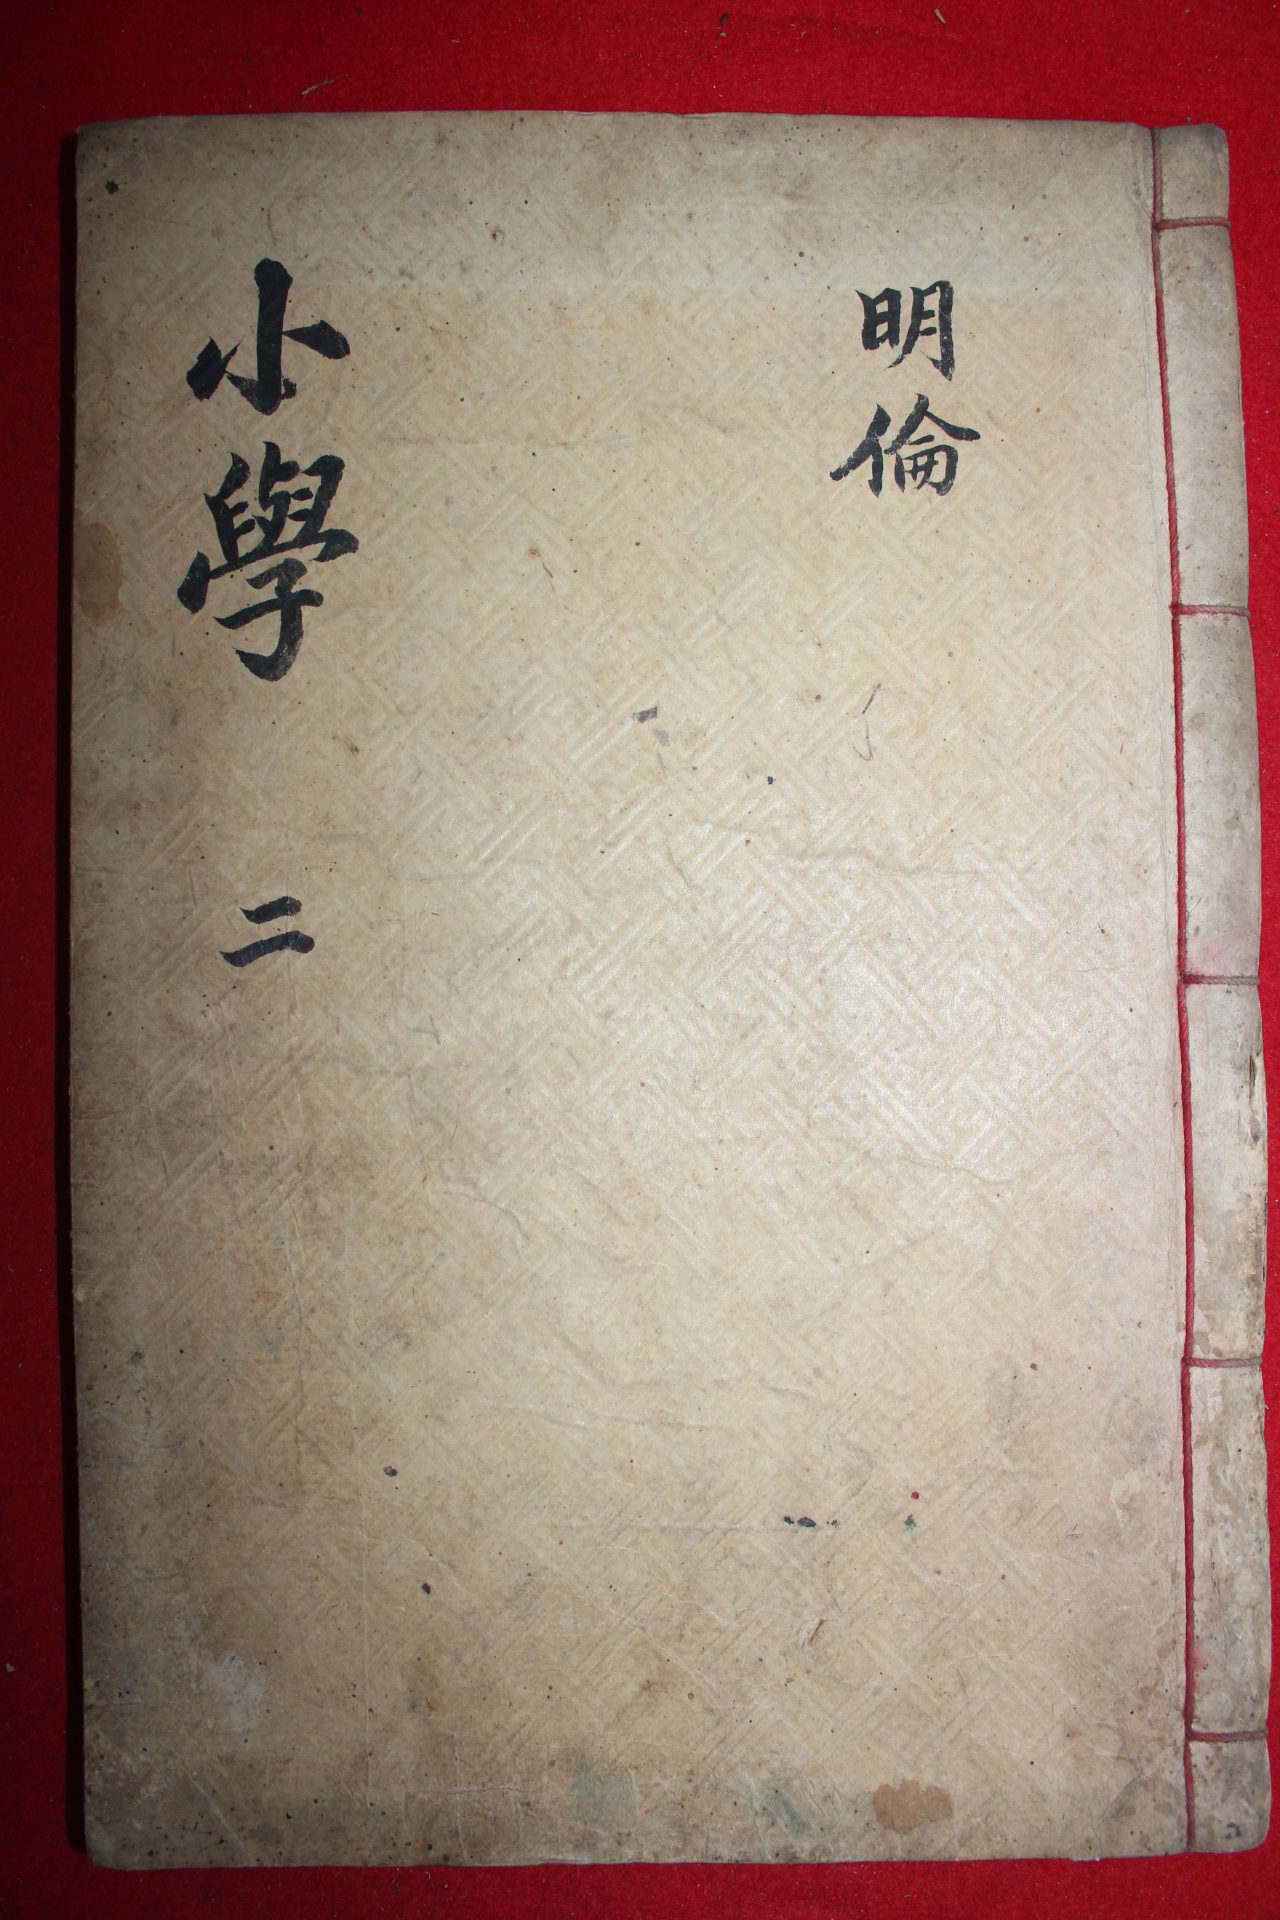 明倫
小學 二